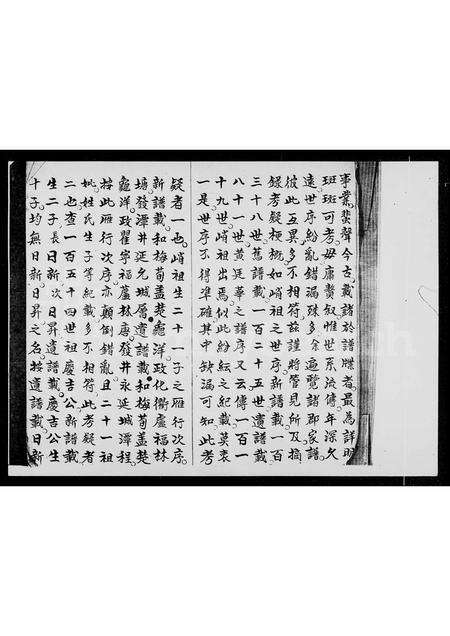 事業蜚聲今古載諸於譜牒者最為詳明
班班可考毋庸贅叙惟世系流傳年深久
遠世序紛亂錯漏殊多余遍覽諸郡家譜
彼此互異多不相符茲謹將管見所及摘
錄考疑梗概如峭祖之世序新譜載一百
三十八世舊譜載一百二十五世遺譜載
八十一世黃延華之譜序又云傳一百一
十九世峭祖出焉似此紛紜之紀載莫衷
一是世序不得準確其中缺漏可知此考
疑者一也峭祖生二十一子之雁行次序
新譜載和梅荀盖楚龐洋政化衢盧福林
塲發潭井延允城層遺譜載和梅荀盖楚
龐洋政瞿寧福蘆林唐發井永延城潭程
按此雁行次序亦顛倒錯亂且二十一祖
妣姓氏生子等紀載多不相符此考疑者
二也查一百五十四世祖慶吉公新譜載
生二子長日新次日昇遺譜載慶吉公生
十子均無日新日昇之名按遺譜載日新